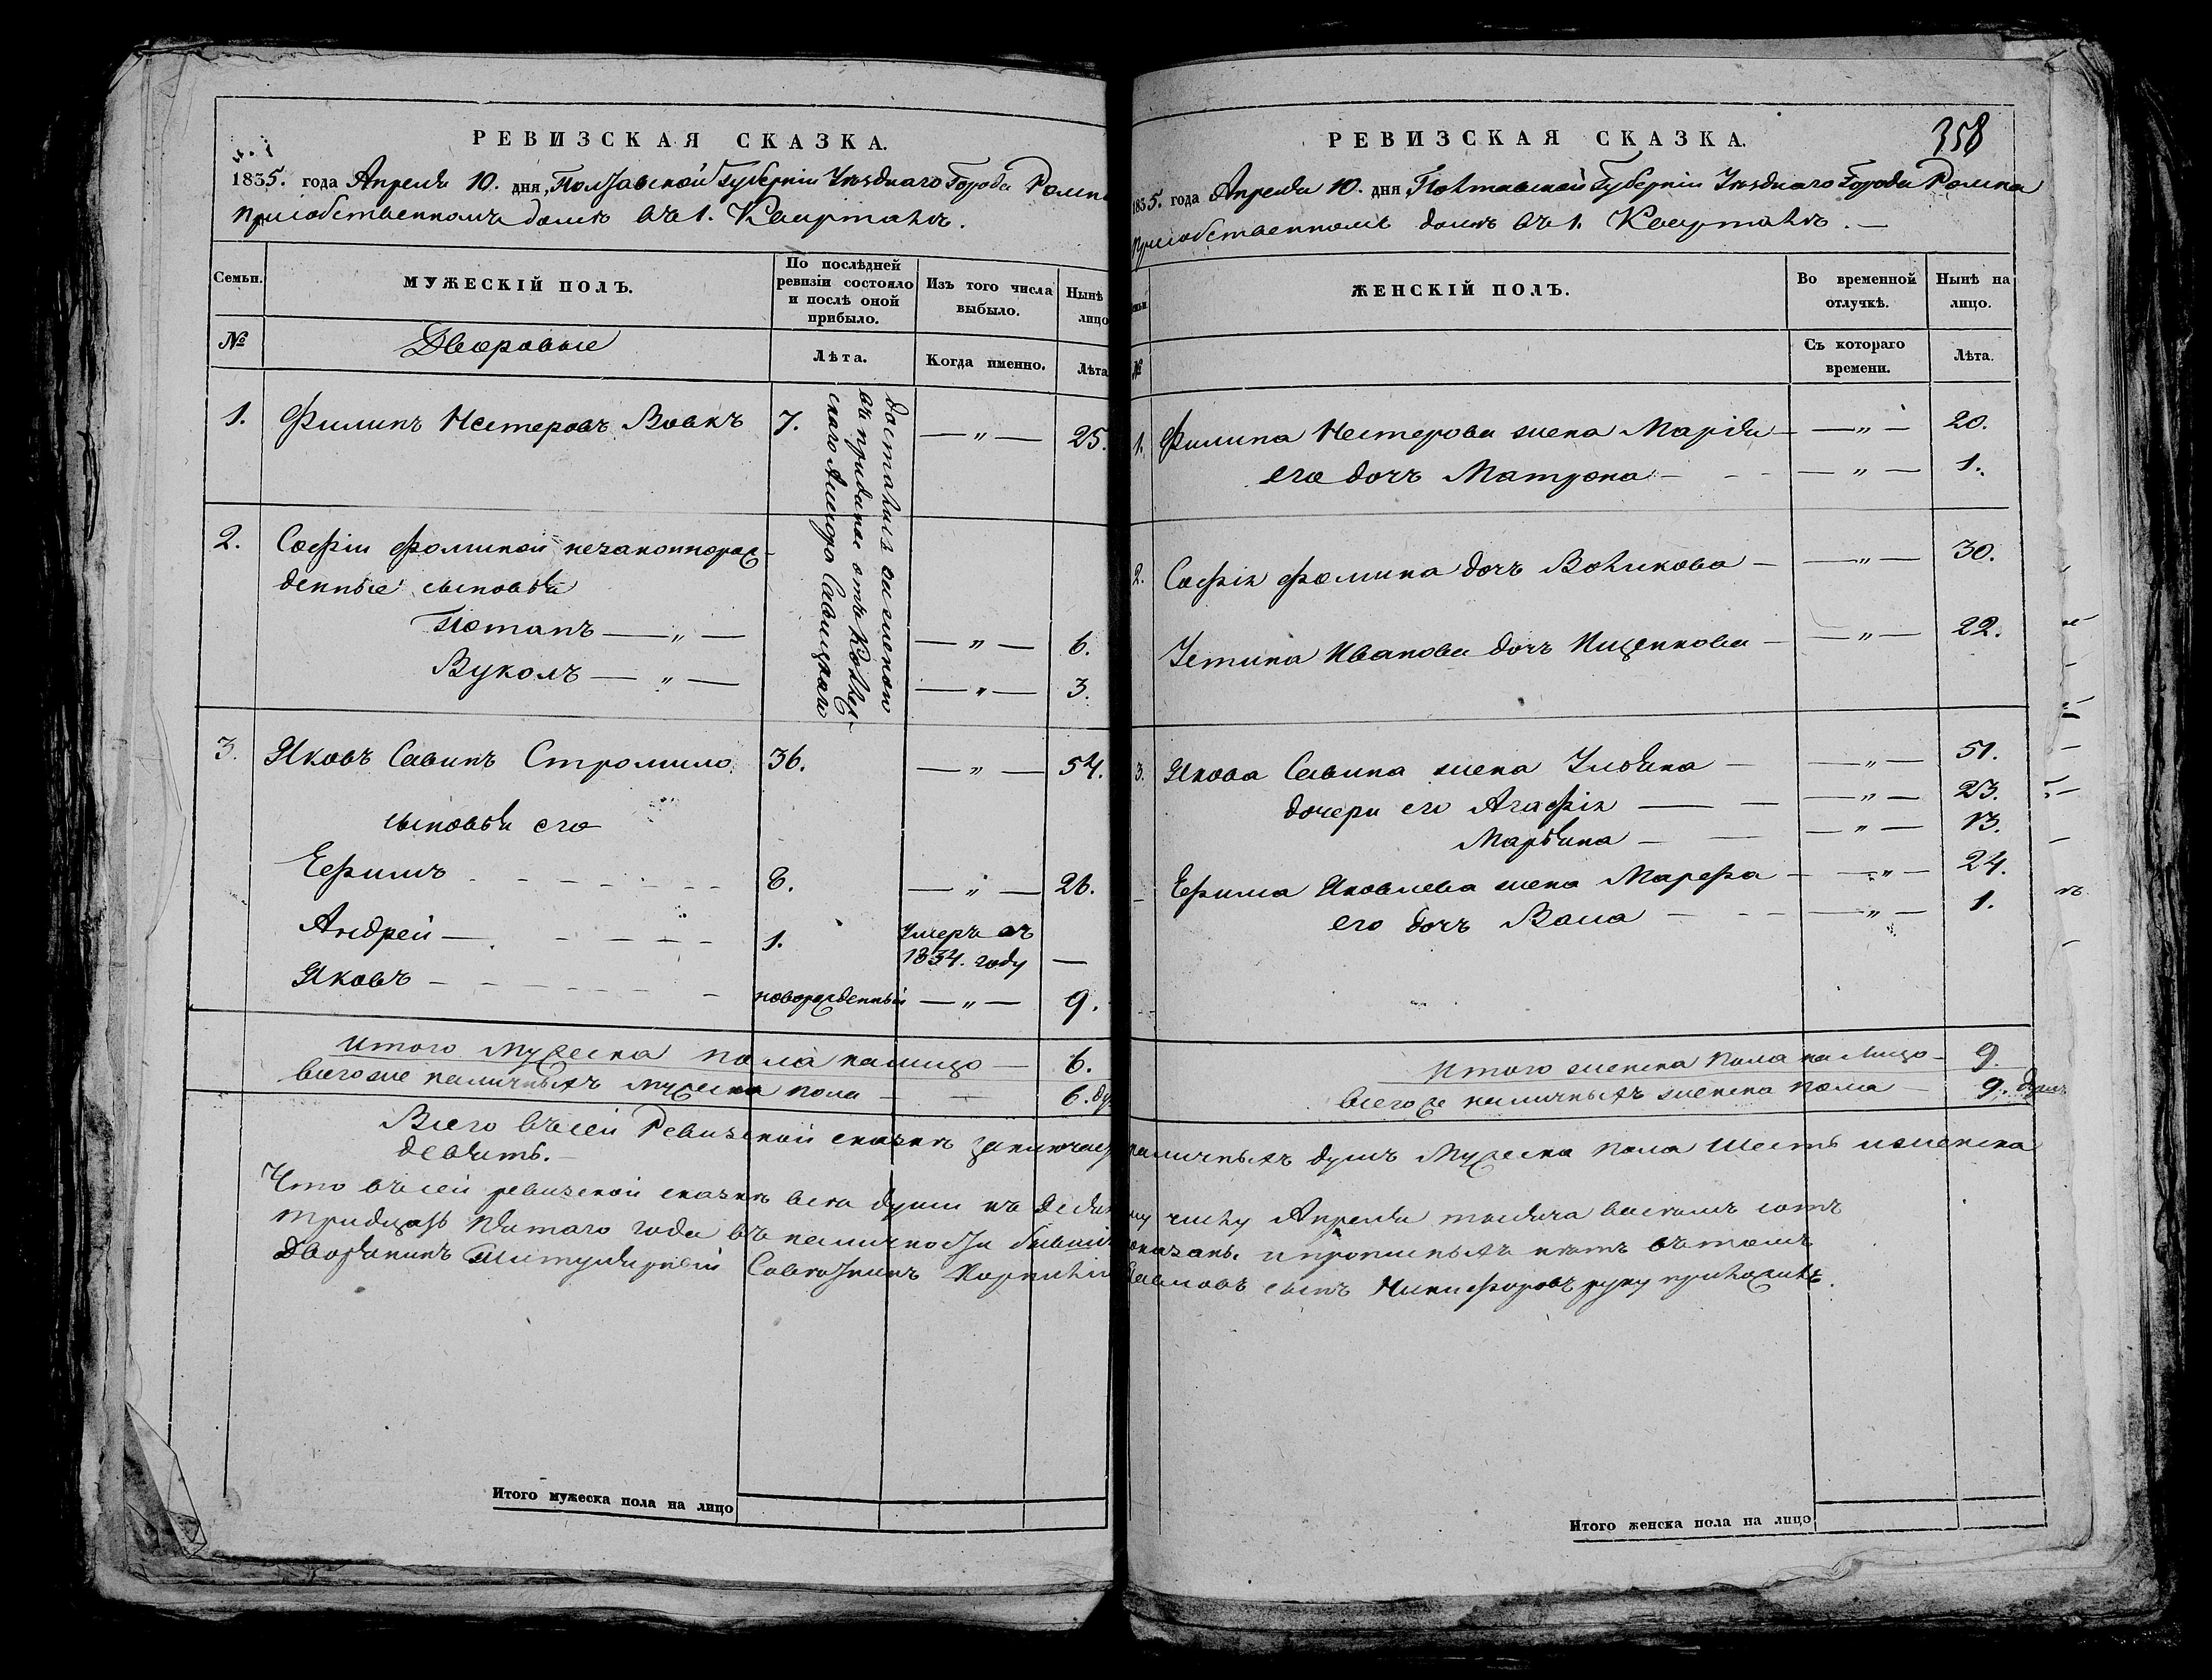 РЕВИЗСКАЯ СКАЗКА.
1835. года Апреля 10. дня, Полтавской Губернии Уезднаго Города Ромна
присобственномъ доме въ 1. Квартале.
Семьи.
МУЖЕСКІЙ ПОЛЪ.
По послѣдней ревизіи состояло и послѣ оной прибыло.
Изъ того числа выбыло.
Нынѣ лицо
№
Дворовые
Лѣта.
Когда именно.
Лѣта
1. Филипъ Нестеровъ Вовкъ 7. — „ — 25.
досталась заженою
въ приданое отъ Коллеж-
скаго Ассесора Савицкаго
2. Софіи Фоминой незаконнорож-
денные сыновья
Потапъ — „ — — „ — 6.
Вуколъ — „ — — „ — 3.
3. Яковъ Савинъ Стромило. 36. — „ — 54.
сыновья его
Ефимъ 8. — „ — 26.
Андрей — 1. Умеръ въ 1834. году —
Яковъ новорожденный — „ — 9.
Итого мужеска пола налицо — 6.
Всегоже наличныхъ мужеска пола — 6. ду
Итого мужеска пола на лицо
РЕВИЗСКАЯ СКАЗКА.
358
1835. года Апреля 10. дня Полтавской Губерніи Уезднаго Города Ромна
присобственномъ доме въ 1. Квартале. —
ЖЕНСКІЙ ПОЛЪ.
Во временной отлучкѣ.
Нынѣ на лицо.
№
Съ котораго времени.
Лѣта.
1. Филипа Нестерова жена Марія — — „ — 20.
его дочь Матрона — — „ — 1.
2. Софія Фомина дочь Волкова — — „ — 30.
Устина Иванова дочь Ищенкова — — „ — 22.
3. Якова Савина жена Ульяна — — „ — 51.
дочери его Агафія — — „ — 23.
Марьяна — — „ — 13.
Ефима Яковлева жена Марфа — — „ — 24.
его дочь Васа — — „ — 1.
Итого женска пола на лицо — 9.
Всегоже наличныхъ женска пола — 9. душъ
Всего въсей Ревизской сказке заключается наличныхъ душъ Мужеска пола Шесть иженска
девять. —
Что въсей ревизской сказке все души къ десятому числу Апреля тысяча восемь сотъ
тридцать пятаго года въ наличности бывшие показаны. ипрописныхъ нетъ въ томъ
Дворянинъ Титулярный Советникъ Корнилій Павловъ сынъ Никифоровъ руку приложилъ.
Итого женска пола на лицо